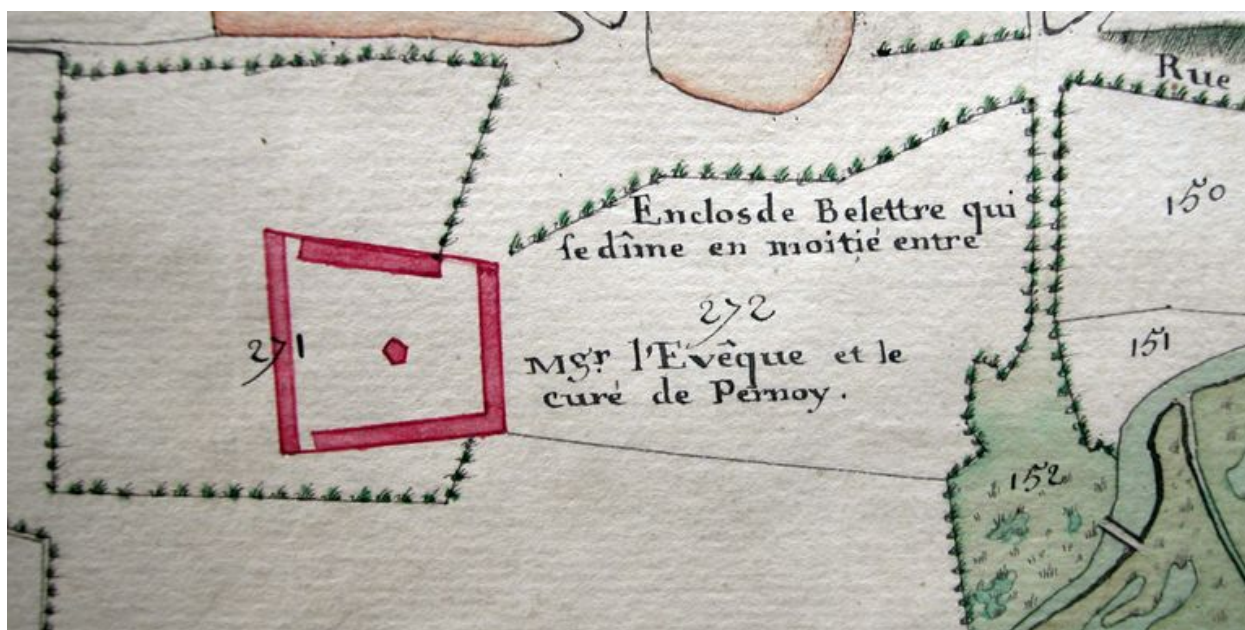 Rue
150
Enclos de Belettre qui
se dîme en moitié entre
272
151
271
Mgr l'Evêque et le
curé de Pernoy.
152